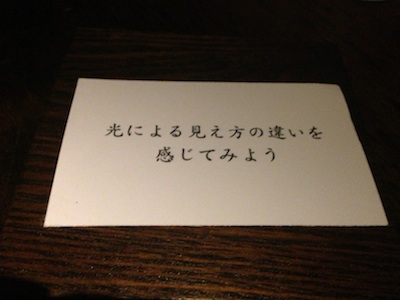 光による見え方の違いを
感じてみよう